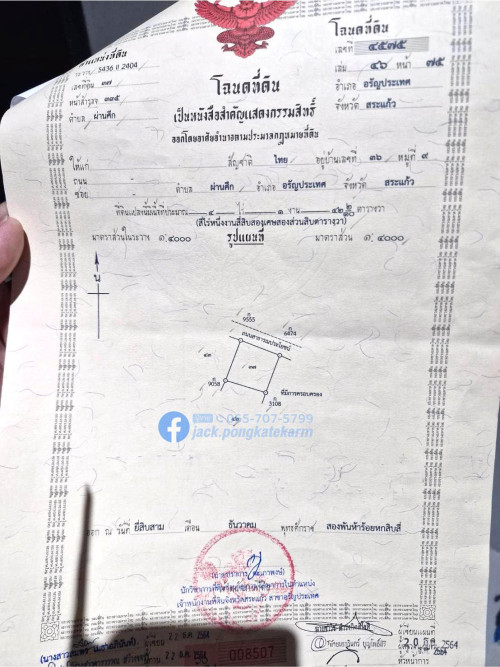 โฉนดที่ดิน
เลขที่ ๔๕๗๕
เล่ม ๔๖ หน้า ๗๕
อำเภอ อรัญประเทศ
จังหวัด สระแก้ว
5436 II 2404
เลขที่ดิน ๓๗
หน้าสำรวจ ๓๑๕
ตำบล ผ่านศึก
โฉนดที่ดิน
เป็นหนังสือสำคัญแสดงกรรมสิทธิ์
ออกโดยอาศัยอำนาจตามประมวลกฎหมายที่ดิน
ให้แก่ สัญชาติ ไทย อยู่บ้านเลขที่ ๓๖ หมู่ที่ ๙
ถนน
ซอย ตำบล ผ่านศึก อำเภอ อรัญประเทศ จังหวัด สระแก้ว
ที่ดินแปลงนี้มีเนื้อที่ประมาณ ๔ ไร่ ๑ งาน ๔๒ ๒/๑๐ ตารางวา
(สี่ไร่หนึ่งงานสี่สิบสองเศษสองส่วนสิบตารางวา)
มาตราส่วนในระวาง ๑:๔๐๐๐ รูปแผนที่ มาตราส่วน ๑:๔๐๐๐
น
9555
6474
ถนนสาธารณประโยชน์
๓๗
9058
3108
ที่มีการครอบครอง
065-707-5799
jack.pongkatekarm
ออก ณ วันที่ ยี่สิบสาม เดือน ธันวาคม พุทธศักราช สองพันห้าร้อยหกสิบสี่
เจ้าพนักงานที่ดินจังหวัดสระแก้ว สาขาอรัญประเทศ
22 ธ.ค. 2564
22 ธ.ค. 2564
008507